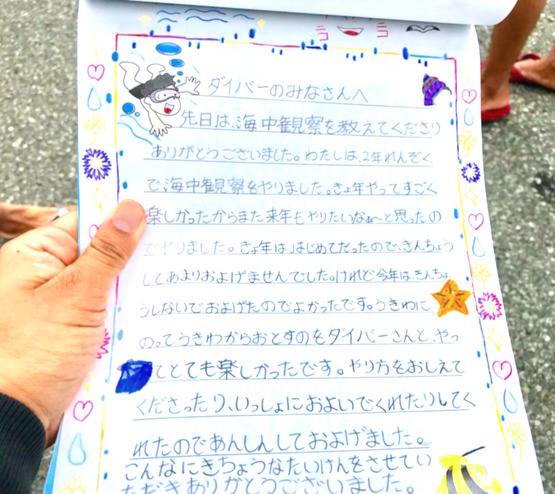 ダイバーのみなさんへ
先日は、海中観察を教えてくださり
ありがとうございました。わたしは、2年れんぞく
で海中観察をやりました。きょ年やってすごく
楽しかったからまた来年もやりたいなぁ〜と思ったの
でやりました。きょ年は、はじめてだったので、きんちょう
してあまりおよげませんでした。けれど今年は、きんちょ
うしないでおよげたのでよかったです。うきわに
のってうきわからおとすのをダイバーさんと、やっ
てとても楽しかったです。やり方をおしえて
くださったり、いっしょにおよいでくれたりしてく
れたのであんしんしておよげました。
こんなにきちょうなたいけんをさせてい
ただきありがとうございました。